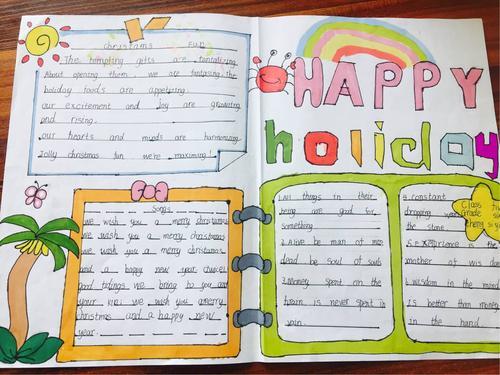 Christams Fun
The tempting gifts are tantalizing.
About opening them we are fantasing the
holiday foods are appetizing.
our excitement and joy are growing
and rising.
our hearts and minds are harmonizing.
Jolly christmas fun we're maximing!
HAPPY
holiday
Songs
we wish you a merry christmas
we wish you a merry christmas
we wish you a merry christmas
and a happy new year
good tidings we bring to you and
your kin we wish you a merry
christmas and a happy new
year.
1.All things in their
being are good for
something.
2.Alive be man of men
dead be soul of souls
3.Money spent on the
brain is never spent in
vain.
4.constant
dropping
the stone
5.Experience is the
mother of wisdom
6.wisdom in the mind
is better than money
in the hand.
Class
Grade six